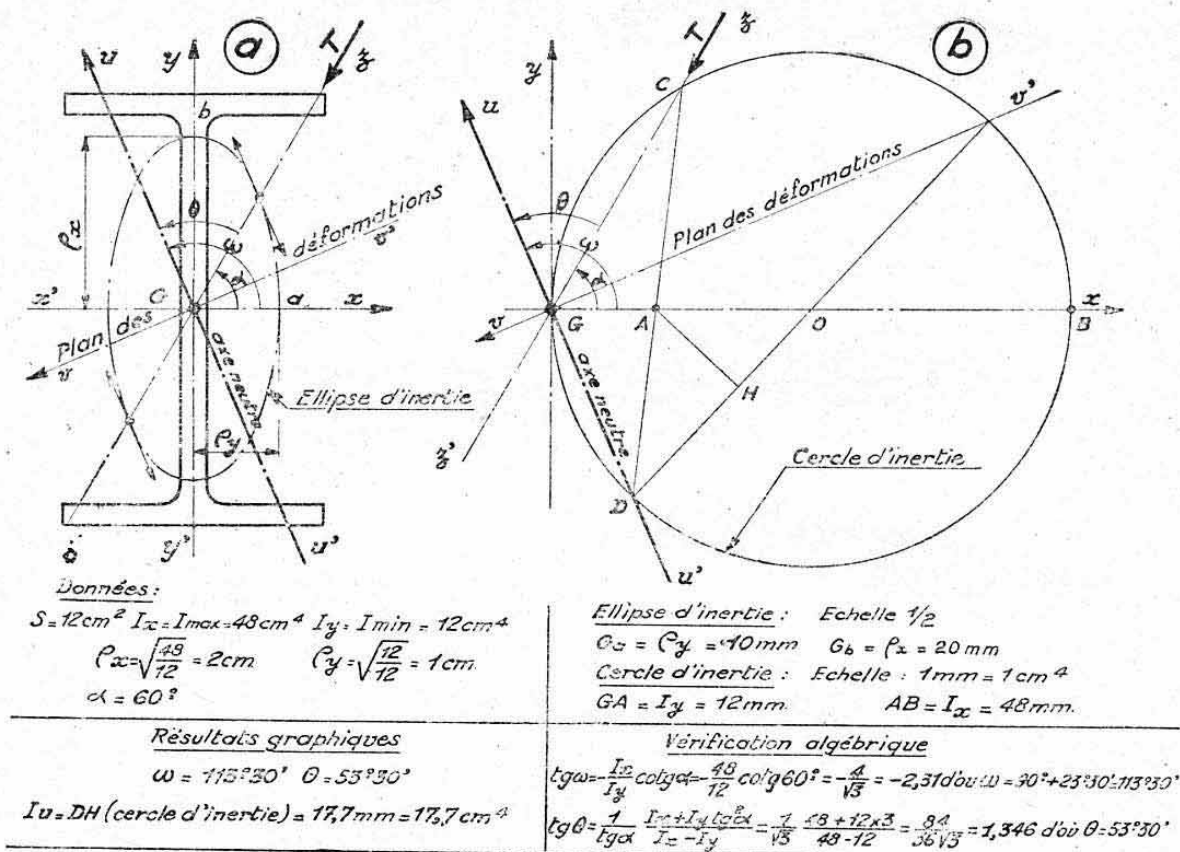 a
b
u
y
T
z
b
ρx
θ
ω
α
déformations
v'
x'
G
a
x
Plan des
v
axe neutre
Ellipse d'inertie
ρy
y'
u'
T
z
y
C
u
v'
θ
ω
α
Plan des déformations
v
G
A
O
x
B
H
axe neutre
z'
D
Cercle d'inertie
u'
Données:
S=12cm² Ix=Imax=48cm⁴ Iy=Imin=12cm⁴
ρx=√48/12=2cm ρy=√12/12=1cm
α=60°
Ellipse d'inertie: Echelle 1/2
Ga=ρy=10mm Gb=ρx=20mm
Cercle d'inertie: Echelle: 1mm=1cm⁴
GA=Iy=12mm. AB=Ix=48mm.
Résultats graphiques
ω=113°30' θ=53°30'
Iu=DH (cercle d'inertie)=17,7mm=17,7cm⁴
Vérification algébrique
tgω=-Ix/Iy cotgα=-48/12 cotg60°=-4/√3=-2,31 d'où ω=90°+23°30'=113°30'
tgθ=1/tgα Ix+Iy tg²α/Ix-Iy=1/√3 48+12x3/48-12=84/36√3=1,346 d'où θ=53°30'